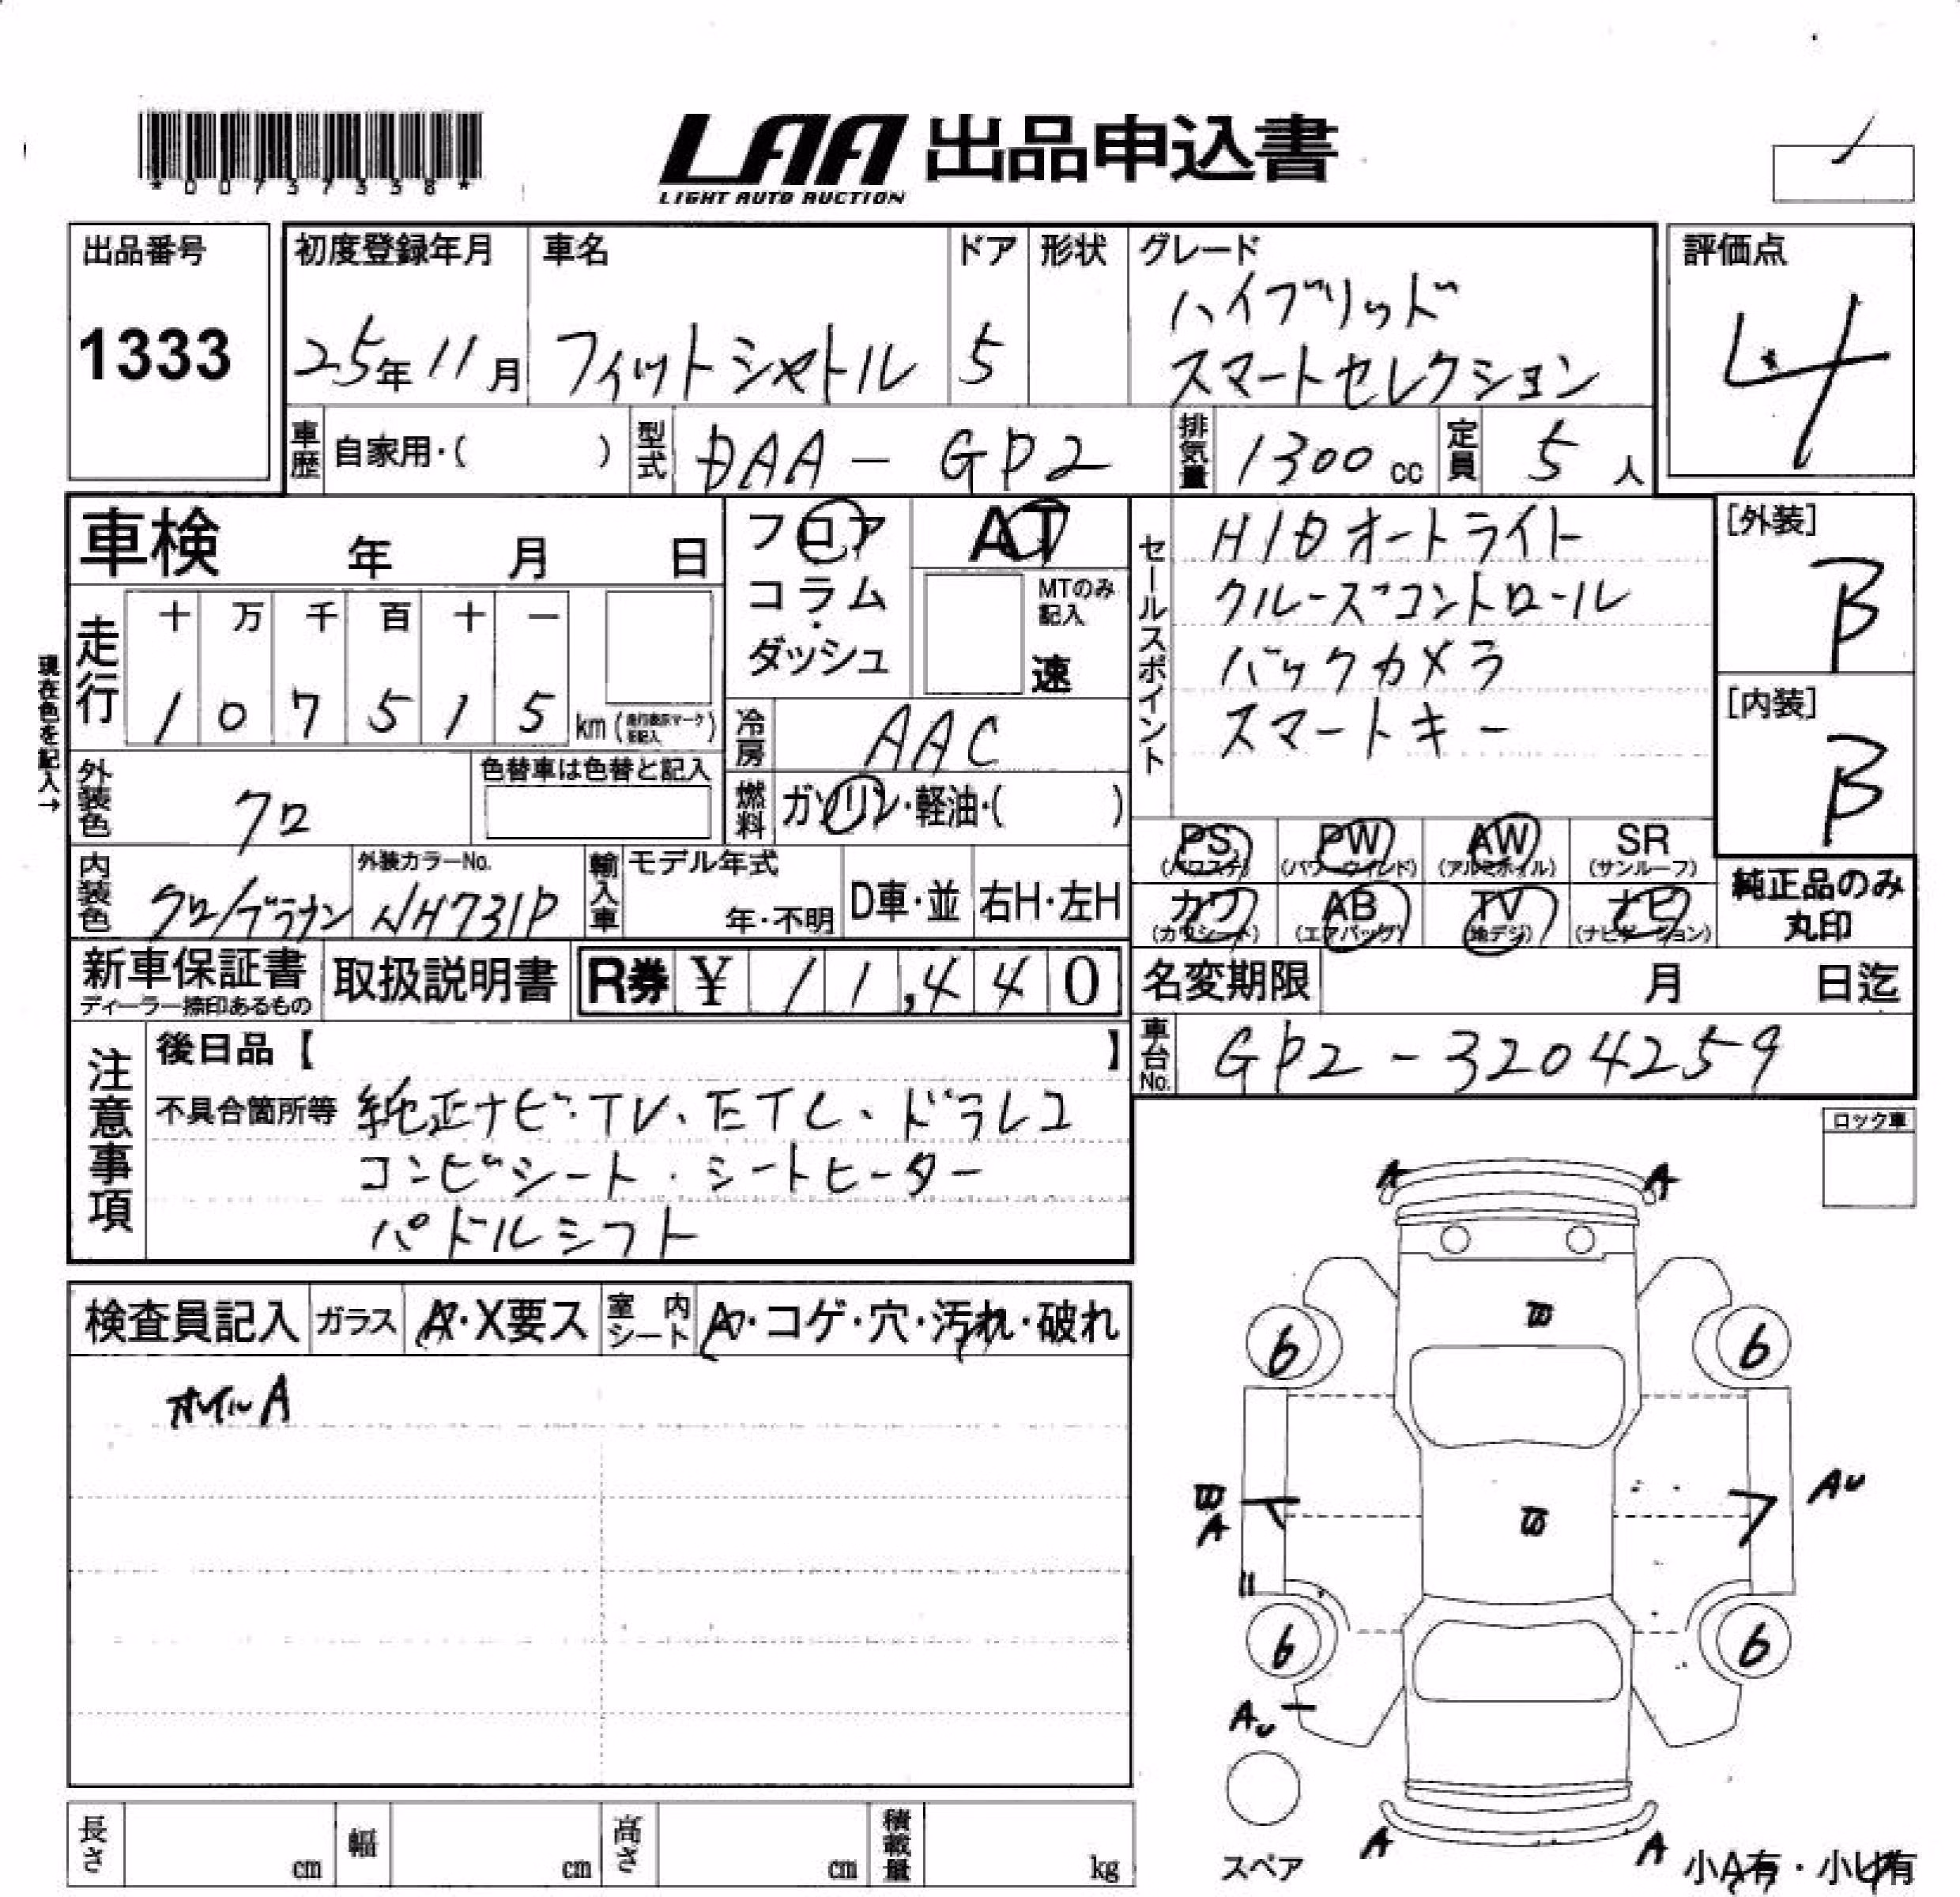 *00737338*
LAA 出品申込書
LIGHT AUTO AUCTION
出品番号
1333
初度登録年月
25年11月
車名
フィットシャトル
ドア
5
形状
グレード
ハイブリッド
スマートセレクション
評価点
4
車歴 自家用・( )
型式 DAA-GP2
排気量 1300cc
定員 5人
車検 年 月 日
フロア
コラム
・
ダッシュ
AT
MTのみ
記入
速
セールスポイント
HIDオートライト
クルーズコントロール
バックカメラ
スマートキー
[外装]
B
[内装]
B
現在色を記入→
走行
十 万 千 百 十 一
1 0 7 5 1 5 km
冷房 AAC
外装色 クロ
色替車は色替と記入
燃料 ガソリン・軽油・( )
PS (パワステ)
PW (パワーウインド)
AW (アルミホイル)
SR (サンルーフ)
カワ (カワシート)
AB (エアバッグ)
TV (地デジ)
ナビ (ナビゲーション)
純正品のみ
丸印
内装色 クロ/ブラウン
外装カラーNo.
NH731P
輸入車
モデル年式
年・不明
D車・並
右H・左H
新車保証書
ディーラー捺印あるもの
取扱説明書
R券 ¥11,440
名変期限 月 日迄
車台No. GP2-3204259
注意事項
後日品【 】
不具合箇所等 純正ナビ・TV、ETC、ドラレコ
コンビシート・シートヒーター
パドルシフト
ロック車
検査員記入
ガラス
A・X要ス
室内シート
・コゲ・穴・汚れ・破れ
オイルA
A A
6 6
A
AU
6 6
AU
スペア
A A
小A有・小U有
長さ cm
幅 cm
高さ cm
積載量 kg